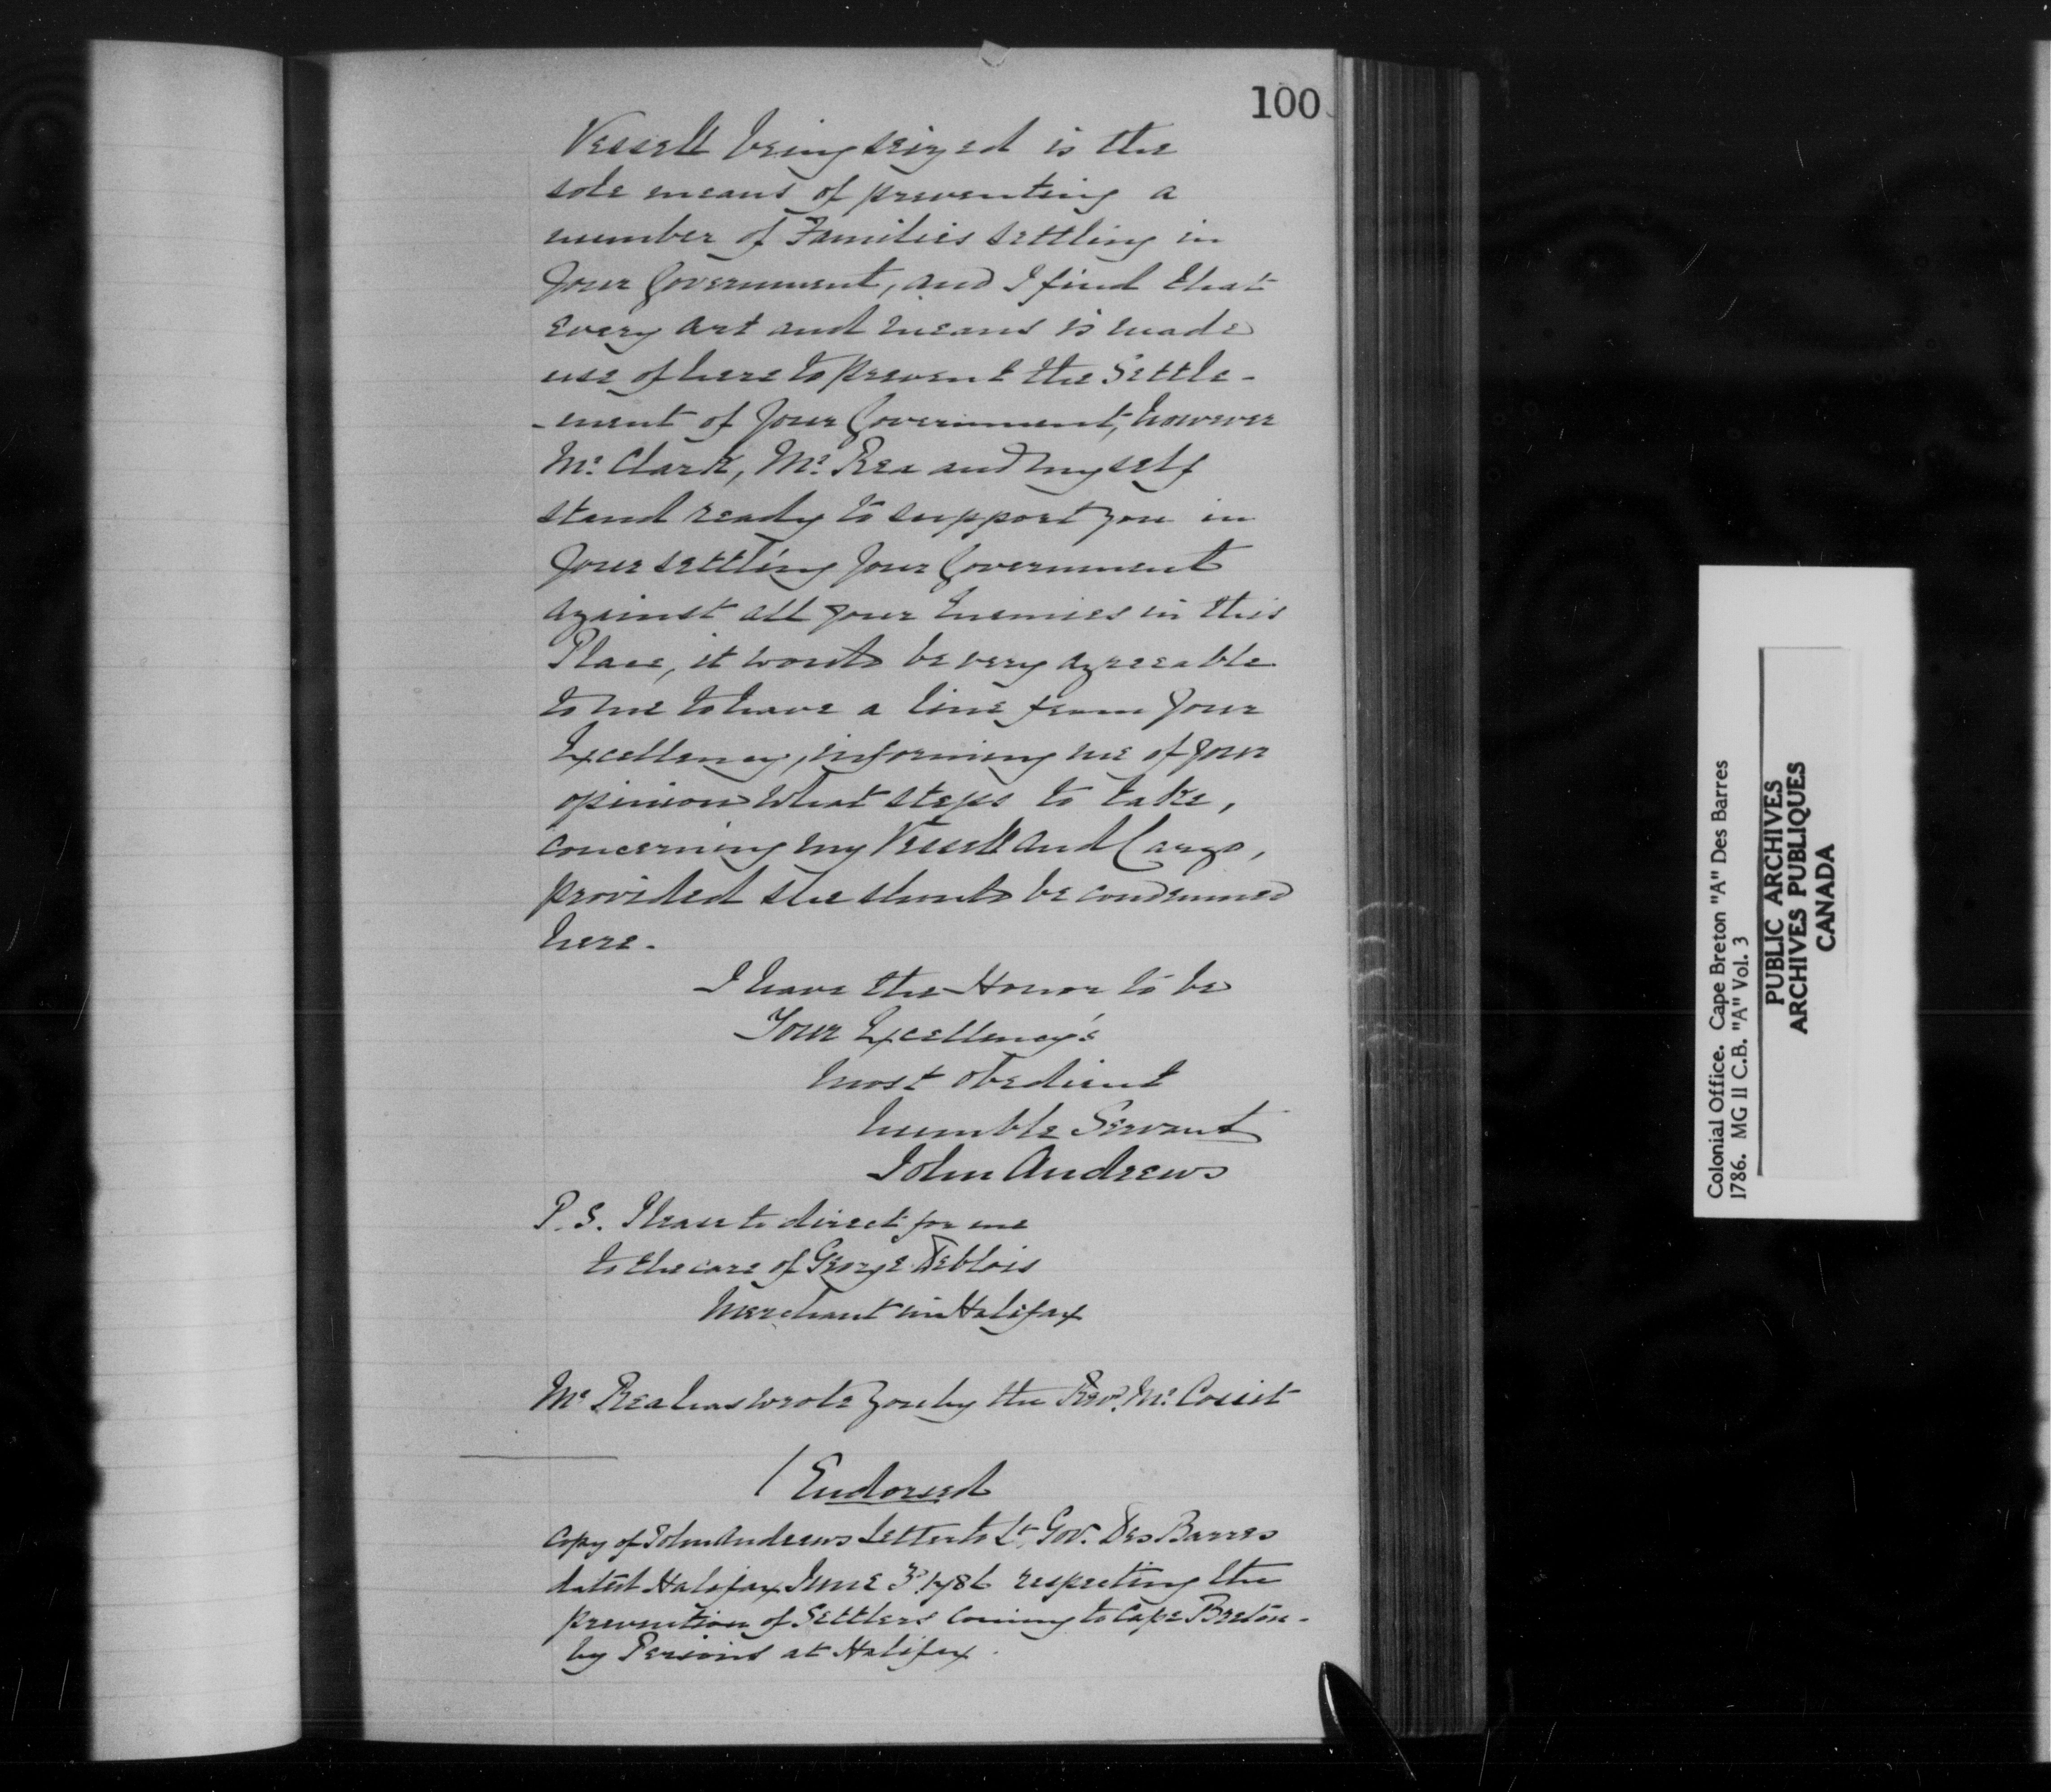 100
Vessell being seized is the
sole means of preventing a
number of Families settling in
Your Government, and I find that
every art and means is made
use of here to prevent the Settle-
-ment of Your Government, however
Mr. Clark, Mr. Rea and myself
stand ready to support you in
Your settling Your Government
against all your Enemies in this
Place, it would be very agreeable
to me to have a line from Your
Excellency, informing me of Your
opinion what steps to take,
concerning my Vessell and Cargo,
provided she should be condemned
here.
I have the Honor to be
Your Excellency's
most obedient
humble Servant
John Andrews
P.S. Please to direct for me
to the care of George Deblois
Merchant in Halifax
Mr Rea has wrote You by the Revd. Mr. Cossit
(Endorsed
Copy of John Andrews Letter to Lt. Gov. Des Barres
dated Halifax June 3d 1786 respecting the
prevention of Settlers coming to Cape Breton-
by Persons at Halifax.
Colonial Office. Cape Breton "A" Des Barres
1786. MG 11 C.B. "A" Vol. 3
PUBLIC ARCHIVES
ARCHIVES PUBLIQUES
CANADA